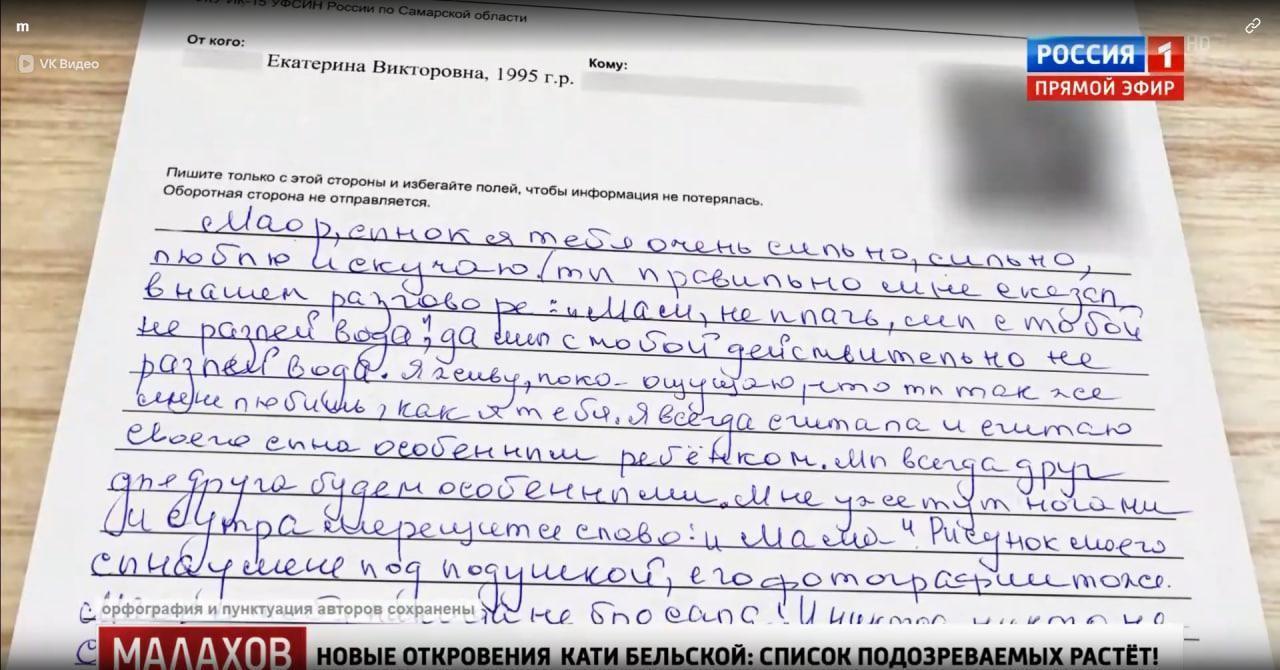 m
VK Видео
ИК-15 УФСИН России по Самарской области
От кого:
Екатерина Викторовна, 1995 г.р.
Кому:
РОССИЯ 1
HD
ПРЯМОЙ ЭФИР
Пишите только с этой стороны и избегайте полей, чтобы информация не потерялась.
Оборотная сторона не отправляется.
Маор, сынок я тебя очень сильно, сильно,
люблю и скучаю! ты правильно мне сказал
в нашем разговоре: "Мам, не плачь, мы с тобой
не разлей вода", да мы с тобой действительно не
разлей вода. Я живу, пока ощущаю, что ты так же
меня любишь, как я тебя. Я всегда считала и считаю
своего сына особенным ребёнком. Мы всегда друг
для друга будем особенными. Мне уже тут ночами
и с утра мерещится слово: "Мама". Рисунок моего
сына у меня под подушкой, его фотографии тоже.
не бросала! И никто
орфография и пунктуация авторов сохранены
МАЛАХОВ
НОВЫЕ ОТКРОВЕНИЯ КАТИ БЕЛЬСКОЙ: СПИСОК ПОДОЗРЕВАЕМЫХ РАСТЁТ!